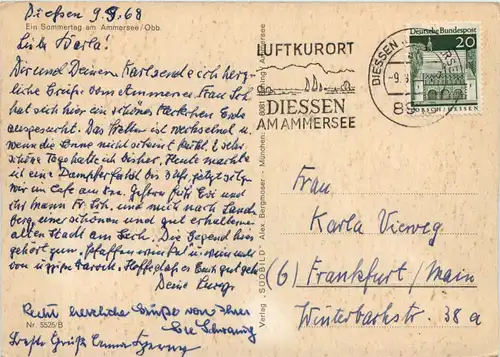 Diessen 9.9.68
Ein Sommertag am Ammersee/Obb.
Liebe Karla!
Dir und Deinem Karl sende ich herz-
liche Grüße vom Ammersee. Frau
hat sich hier ein schönes Fleckchen Erde
ausgesucht. Das Wetter ist wechselnd u.
wenn die Sonne nicht scheint kühl. 2 sehr
schöne Tage hatte ich bisher. Heute machte
ich eine Dampferfahrt bis jetzt sitzen
wir im Café am See. Gestern fuhr Evi und
ihr Mann Fr. und mich nach Lands
berg, einer schönen und gut erhaltenen
alten Stadt am Lech. Die Gegend hier
gehört zum "Pfaffenwinkel" u. wimmelt
von Barock. Hoffe daß es Euch gut geht
Deine
Recht herzliche Grüße von Ihrer
Nr. 5525/B
Verlag "SÜDBILD" Alex Bergmoser - München
LUFTKURORT
DIESSEN
AM AMMERSEE
DIESSEN
-9.
89
Deutsche Bundespost
20
LORSCH/HESSEN
Frau
Karla Vieweg
(6) Frankfurt/Main
Winterbachstr. 38 a